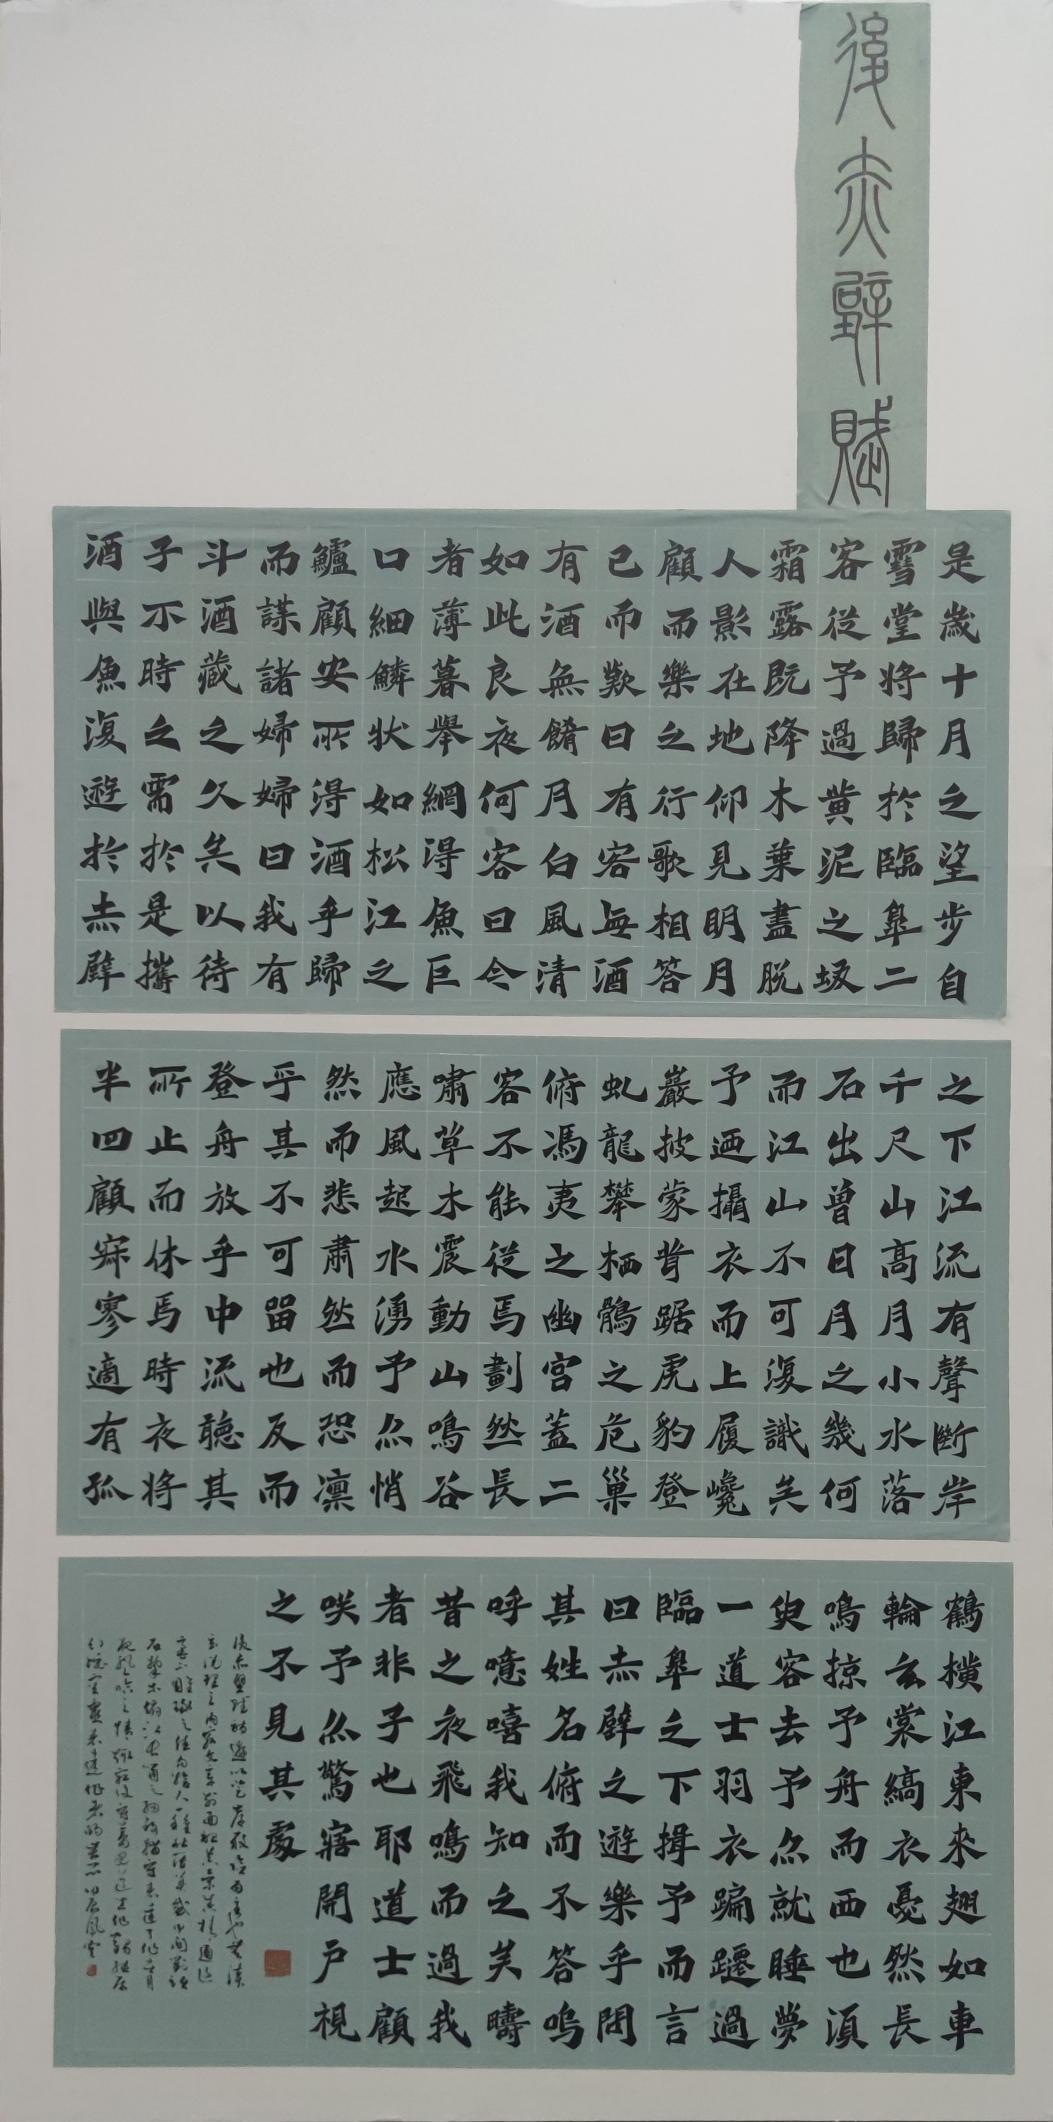 後赤壁賦
是歲十月之望步自
雪堂將歸於臨皋二
客從予過黄泥之坂
霜露既降木葉盡脱
人影在地仰見明月
顧而樂之行歌相答
已而歎曰有客無酒
有酒無餚月白風清
如此良夜何客曰今
者薄暮舉網得魚巨
口細鱗狀如松江之
鱸顧安所得酒乎歸
而謀諸婦婦曰我有
斗酒藏之久矣以待
子不時之需於是攜
酒與魚復遊於赤壁
之下江流有聲斷岸
千尺山高月小水落
石出曾日月之幾何
而江山不可復識矣
予迺攝衣而上履巉
巖披蒙茸踞虎豹登
虬龍攀栖鶻之危巢
俯馮夷之幽宫蓋二
客不能從焉劃然長
嘯草木震動山鳴谷
應風起水湧予亦悄
然而悲肅然而恐凛
乎其不可留也反而
登舟放乎中流聽其
所止而休焉時夜將
半四顧寂寥適有孤
鶴横江東來翅如車
輪玄裳縞衣戛然長
鳴掠予舟而西也須
臾客去予亦就睡夢
一道士羽衣蹁躚過
臨皋之下揖予而言
曰赤壁之遊樂乎問
其姓名俯而不答嗚
呼噫嘻我知之矣疇
昔之夜飛鳴而過我
者非子也耶道士顧
咲予亦驚寤開户視
之不見其處